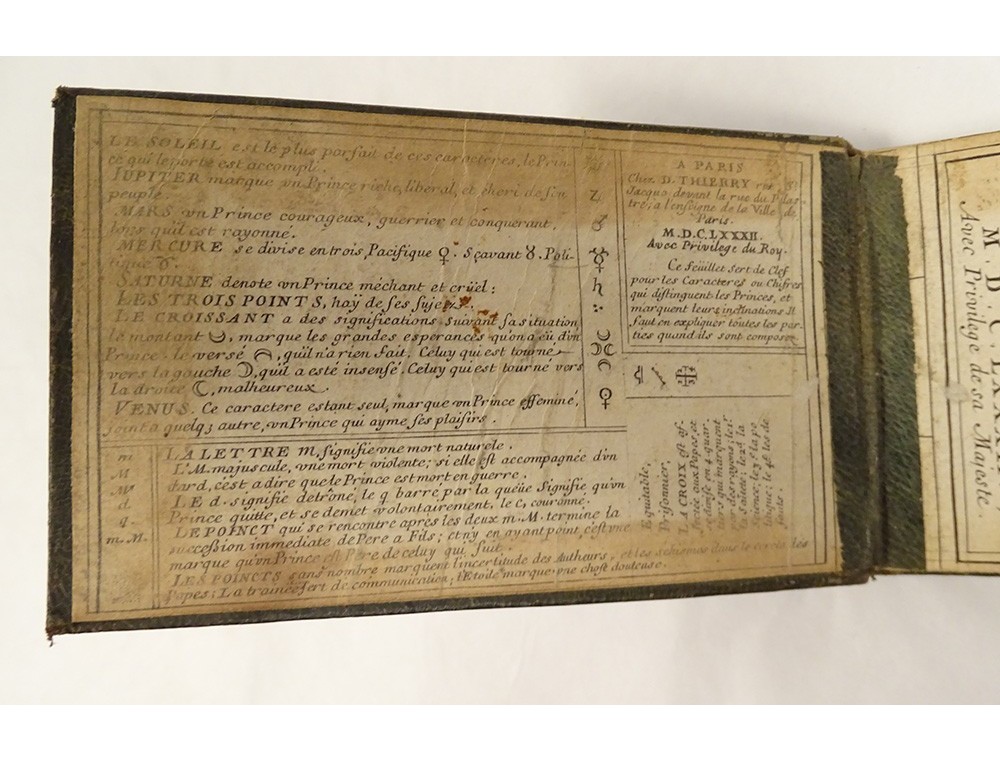 LE SOLEIL est le plus parfait de ces caracteres, le Prin-
ce qui le porte est accompli.
JUPITER marque vn Prince riche, liberal, et cheri de son
peuple.
MARS vn Prince courageux, guerrier et conquerant,
lors qu'il est rayonné.
MERCURE se divise en trois, Pacifique ♀. Sçavant ☿. Poli-
tique ♉.
SATURNE denote vn Prince méchant et crüel:
LES TROIS POINTS, haÿ de ses sujets.
LE CROISSANT a des significations suivant sa situation,
le montant, marque les grandes esperances qu'on a eü, d'vn
Prince: le versé, qu'il n'a rien fait. Celuy qui est tourné
vers la gauche ☽, qu'il a esté insensé. Celuy qui est tourné vers
la droite ☾, malheureux.
VENUS. Ce caractere estant seul, marque vn Prince effeminé,
joint a quelq3 autre, vn Prince qui ayme ses plaisirs.
♃
♂
☿
♄
:·
☾
☽☾
♀
A PARIS
Chez D. THIERRY rue St
Jacque devant la rue du Plas-
tre; a l'enseigne de la Ville de
Paris.
M.D.C.LXXXII.
Avec Privilege du Roy.
Ce feüillet sert de Clef
pour les Caracteres ou Chifres
qui distinguent les Princes, et
marquent leurs inclinations Il
faut en expliquer toutes les par-
ties quand ils sont composez
m
M
M
d
q
m.M.
LA LETTRE m. signifie vne mort naturele.
L'M. majuscule, vne mort violente; si elle est accompagnée d'vn
dard, c'est a dire que le Prince est mort en guerre.
LE d. signifie detrôné, le q barré par la queüe signifie qu'vn
Prince quitte, et se demet volontairement, le C, couronné.
LE POINCT qui se rencontre apres les deux m. M. termine la
succession immediate de Pere a Fils; et n'y en ayant point, c'est vne
marque qu'vn Prince est Pere de celuy qui suit.
LES POINCTS sans nombre marquent l'incertitude des Autheurs, et les schismes dans le cercle des
Papes; La trainée sert de communication; l'Etoile marque vne chose douteuse.
Equitable,
Prisonnier,
LA CROIX est af-
fectée aux Papes, et
se divise en 4. quar-
tiers qui marquent
M.D.C.LXXXII.
Avec Privilege de sa Majesté.